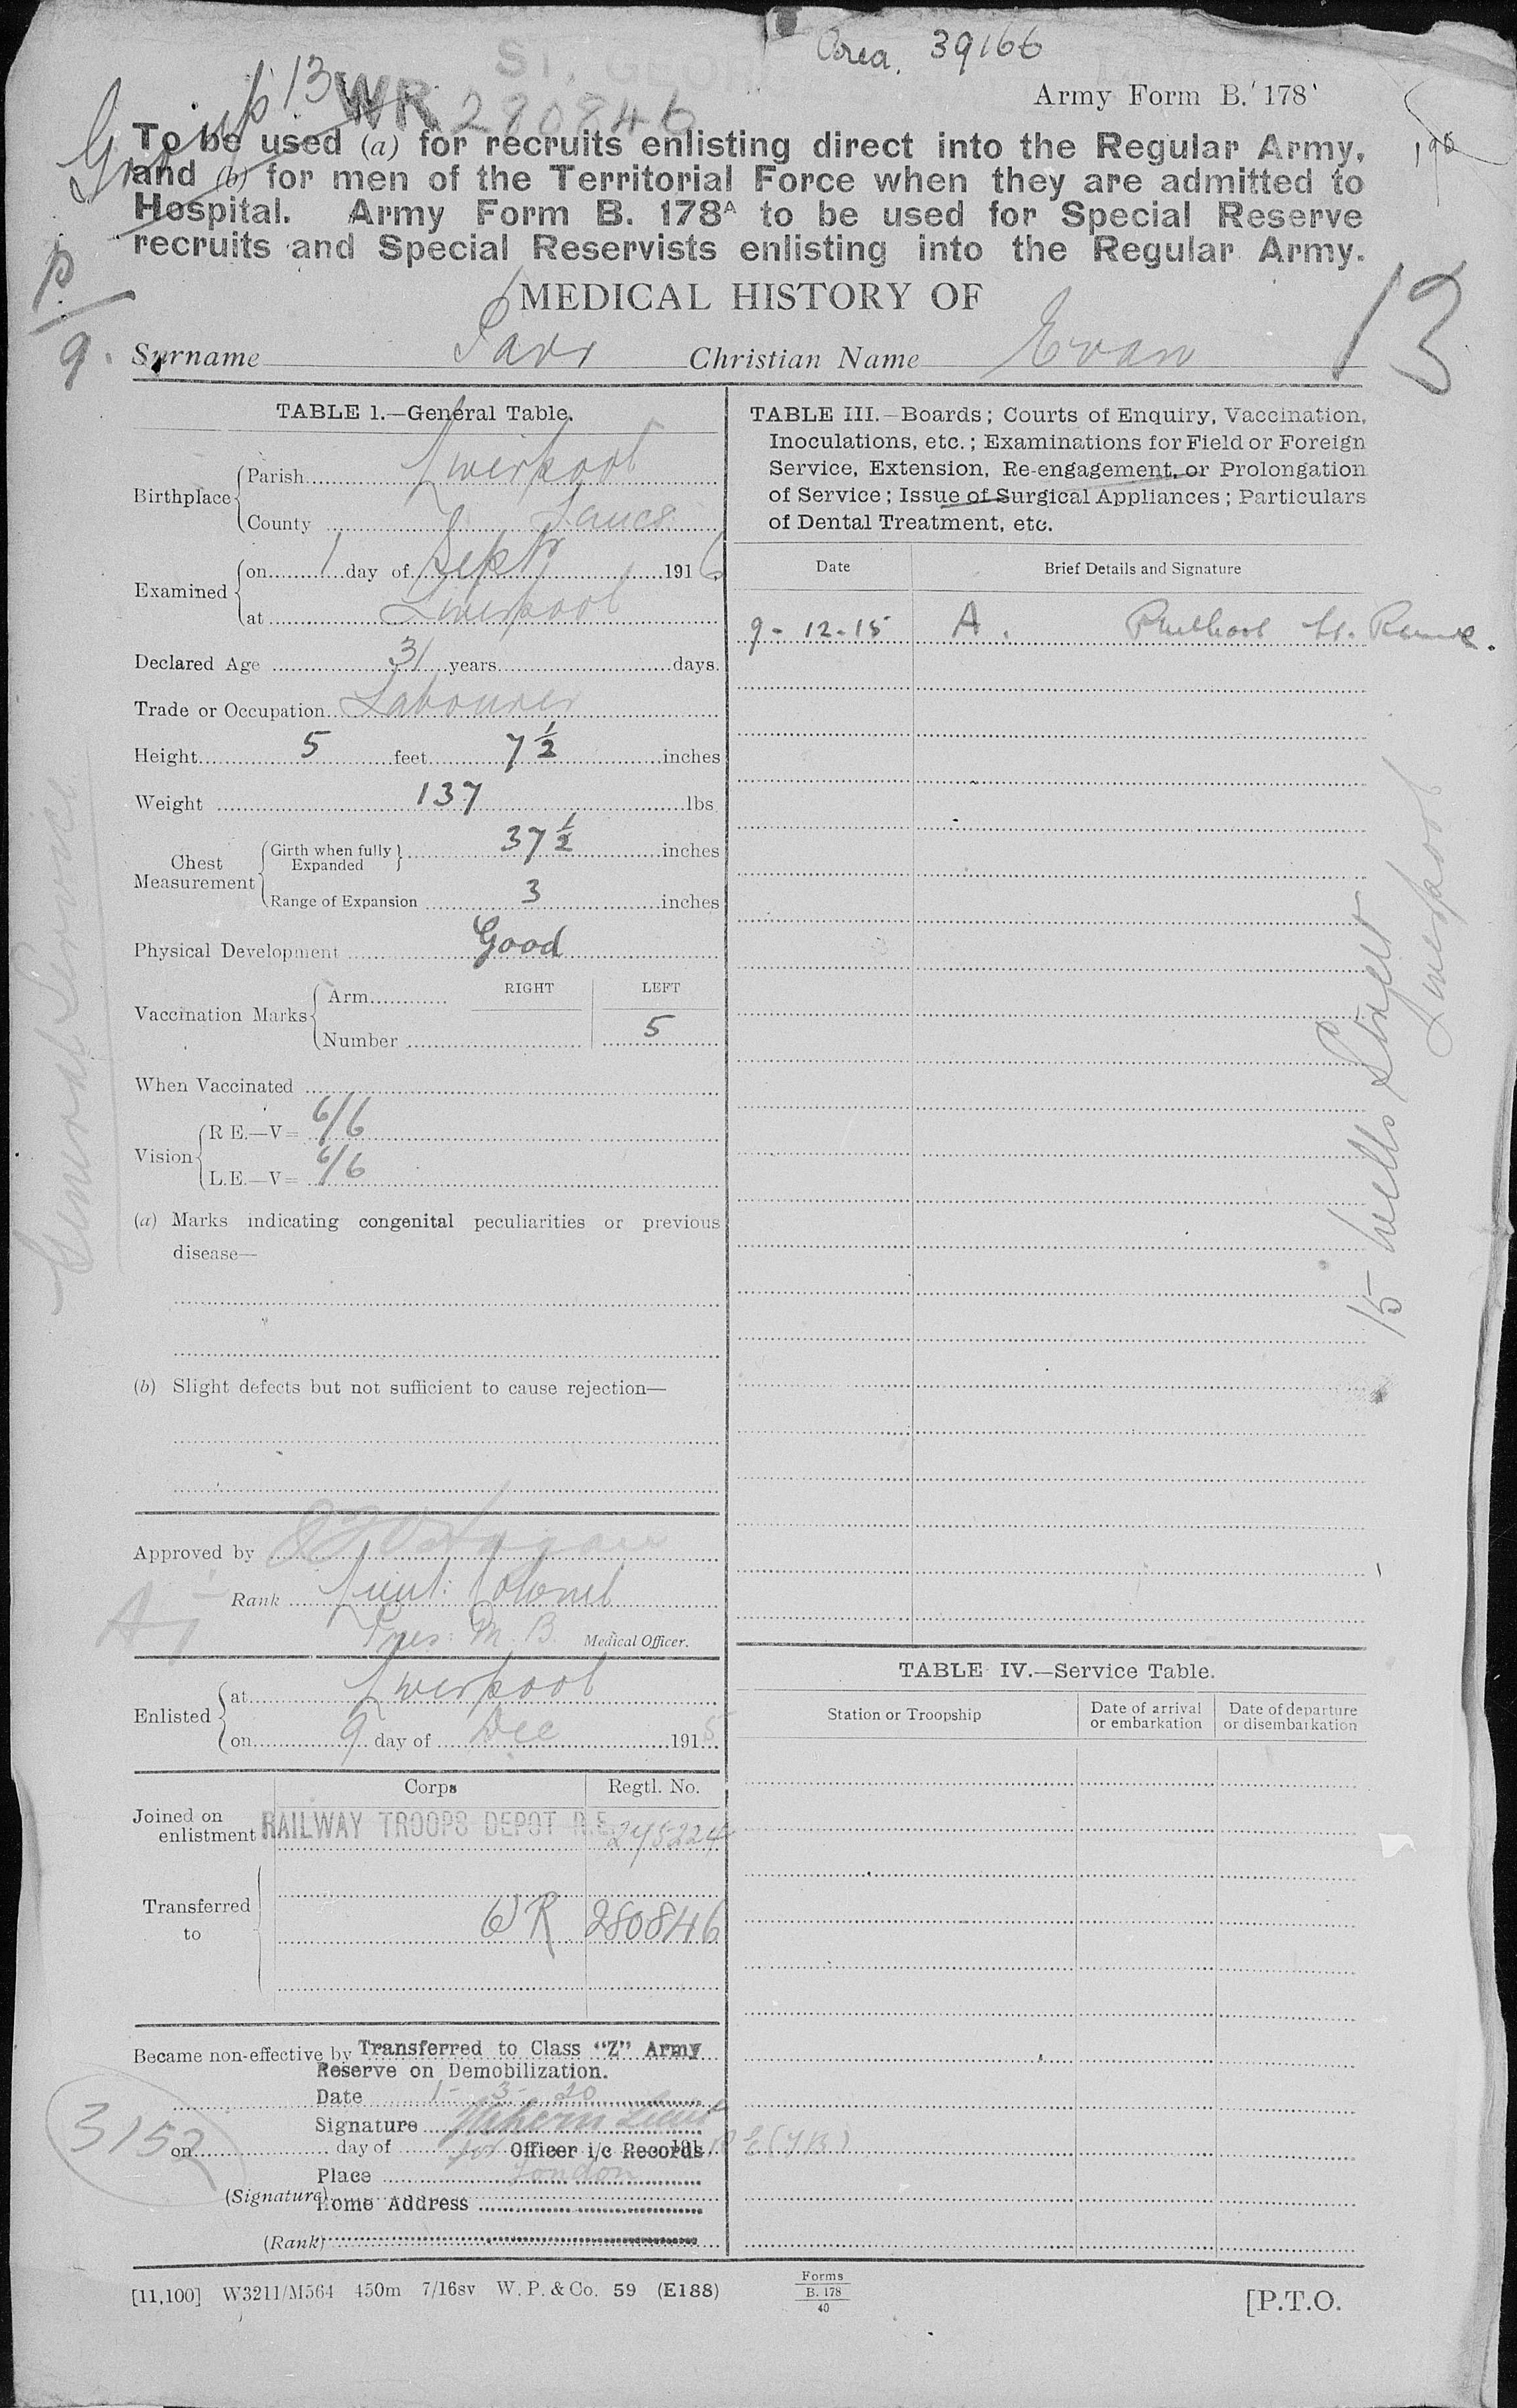 ST. GEO
Area. 39166
Army Form B. 178
Group 13 WR 280846
To be used (a) for recruits enlisting direct into the Regular Army,
and (b) for men of the Territorial Force when they are admitted to
Hospital. Army Form B. 178A to be used for Special Reserve
recruits and Special Reservists enlisting into the Regular Army.
p/9.
MEDICAL HISTORY OF
13
Surname Parr Christian Name Evan
TABLE 1.—General Table.
Birthplace
Parish Liverpool
County Lancs
Examined
on 1 day of Septr 1916
at Liverpool
Declared Age 31 years days.
Trade or Occupation Labourer
Height 5 feet 7 1/2 inches
Weight 137 lbs
Chest Measurement
Girth when fully Expanded 37 1/2 inches
Range of Expansion 3 inches
Physical Development Good
Vaccination Marks
Arm RIGHT LEFT
Number 5
When Vaccinated
Vision
R E.—V= 6/6
L.E.—V= 6/6
(a) Marks indicating congenital peculiarities or previous
disease—
(b) Slight defects but not sufficient to cause rejection—
Approved by
Rank Lieut: Colonel
Pres: M. B. Medical Officer.
A1
Enlisted
at Liverpool
on 9 day of Dec 1915
Corps Regtl. No.
Joined on
enlistment RAILWAY TROOPS DEPOT R.E. 245224
Transferred
to
WR 280846
Became non-effective by Transferred to Class "Z" Army
Reserve on Demobilization.
Date 1-3-20
Signature Lieut
3152
on day of 191
for Officer i/c Records R E (T B)
Place London
(Signature)
Home Address
(Rank)
General Service
TABLE III.—Boards; Courts of Enquiry, Vaccination,
Inoculations, etc.; Examinations for Field or Foreign
Service, Extension, Re-engagement, or Prolongation
of Service; Issue of Surgical Appliances; Particulars
of Dental Treatment, etc.
Date Brief Details and Signature
9-12-15 A.
15 Street
Liverpool
TABLE IV.—Service Table.
Station or Troopship
Date of arrival
or embarkation
Date of departure
or disembarkation
[11,100] W3211/M564 450m 7/16sv W. P. & Co. 59 (E188)
Forms
B. 178
40
[P.T.O.